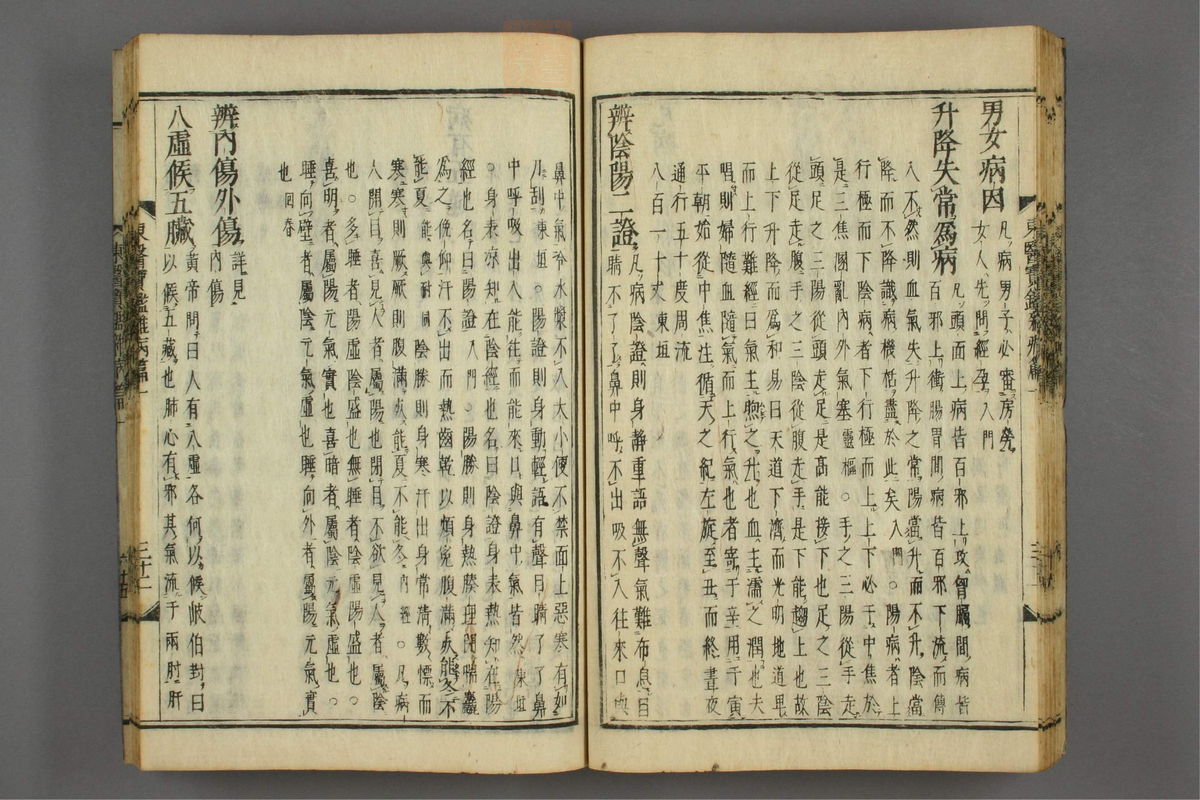 男女病因 凡病男子必審房勞
女人先問經孕入門
升降失常爲病 凡頭面上病皆百邪上攻胷膈間病皆
百邪上衝腸胃間病皆百邪下流而傳
入不然則血氣失升降之常陽當升而不升陰當
降而不降識病機括盡於此矣入門○陽病者上
行極而下陰病者下行極而上上下必于中焦於
是三焦溷亂內外氣塞靈樞○手之三陽從手走
頭足之三陽從頭走足是高能接下也足之三陰
從足走腹手之三陰從腹走手是下能趨上也故
上下升降而爲和易曰天道下濟而光明地道卑
而上行難經曰氣主煦之升也血主濡之潤也夫
唱則婦隨血隨氣而上行氣也者寄于辛用于寅
平朝始從中焦注循天之紀左旋至丑而終晝夜
通行五十度周流
八百一十丈東垣
辨陰陽二證 凡病陰證則身靜重語無聲氣難布息目
睛不了了鼻中呼不出吸不入往來口與
鼻中氣冷水漿不入大小便不禁面上惡寒有如
刀刮東垣○陽證則身動輕語有聲目睛了了鼻
中呼吸出入能往而能來口與鼻中氣皆然東垣
○身表凉知在陰經也名曰陰證身表熱知在陽
經也名曰陽證入門○陽勝則身熱腠理閉喘麤
爲之俛仰汗不出而熱齒乾以煩寃腹滿死能冬不
能夏能與耐同陰勝則身寒汗出身常淸數慄而
寒寒則厥厥則腹滿死能夏不能冬內經○凡病
人開目喜見人者屬陽也閉目不欲見人者屬陰
也○多睡者陽虛陰盛也無睡者陰虛陽盛也○
喜明者屬陽元氣實也喜暗者屬陰元氣虛也○
睡向壁者屬陰元氣虛也睡向外者屬陽元氣實
也回春
辨內傷外傷 詳見
內傷
八虛候五臟 黃帝問曰人有八虛各何以候岐伯對曰
以候五臟也肺心有邪其氣流于兩肘肝
東醫寶鑑雜病篇一
三十二